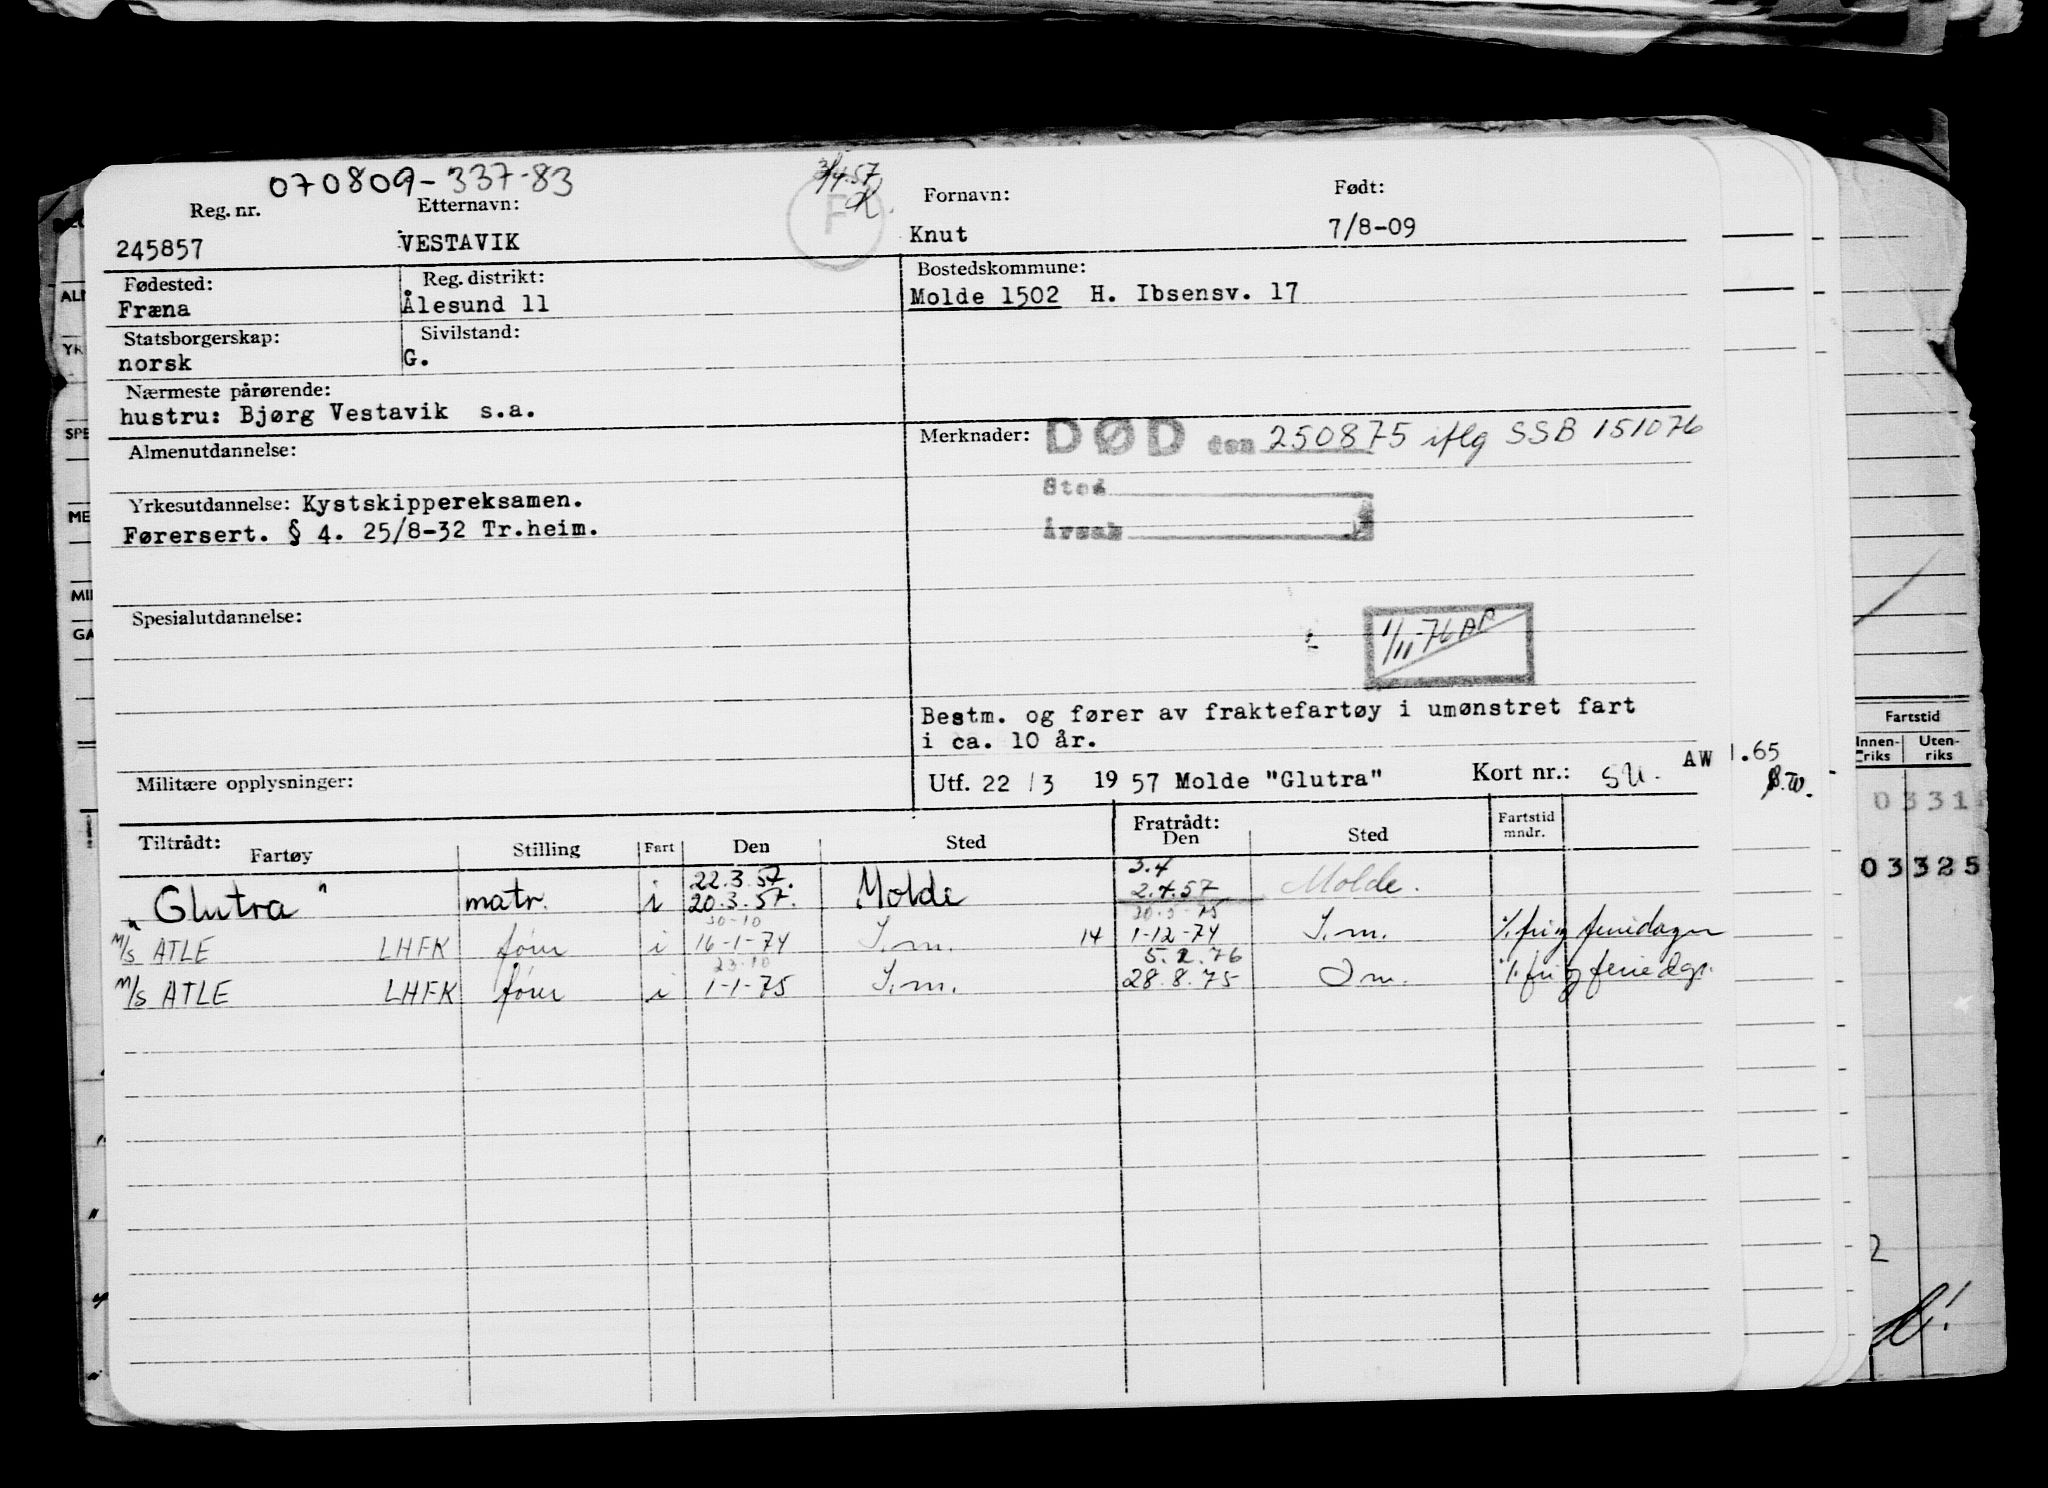 070809-337-83
3/4.57
F
Reg. nr. Etternavn: Fornavn: Født:
245857 VESTAVIK Knut 7/8-09
Fødested: Reg. distrikt: Bostedskommune:
Fræna Ålesund 11 Molde 1502 H. Ibsensv. 17
Statsborgerskap: Sivilstand:
norsk G.
Nærmeste pårørende:
hustru: Bjørg Vestavik s.a.
Almenutdannelse: Merknader: DØD den 250875 iflg SSB 151076
Sted
Årsak
Yrkesutdannelse: Kystskippereksamen.
Førersert. § 4. 25/8-32 Tr.heim.
Spesialutdannelse:
1/11-76 AR
Bestm. og fører av fraktefartøy i umønstret fart
i ca. 10 år.
Militære opplysninger: Utf. 22/3 1957 Molde "Glutra" Kort nr.: SU.
AW 1.65
B.W.
Tiltrådt: Fratrådt: Fartstid mndr.
Fartøy Stilling Fart Den Sted Den Sted
22.3.57. 3.4
"Glutra" matr. i 20.3.57. Molde 2.4.57 Molde.
30-10 20-5-75
M/S ATLE LHFK fører i 16-1-74 I.m. 14 1-12-74 I.m. % fri og feriedager
23-10 5.2.76
M/S ATLE LHFK fører i 1-1-75 I.m. 28.8.75 I m. % fri og feriedgr.
ALM
YR
SPE
ME
MIL
GA
Fartstid
Innenriks Utenriks
0331
03325
2